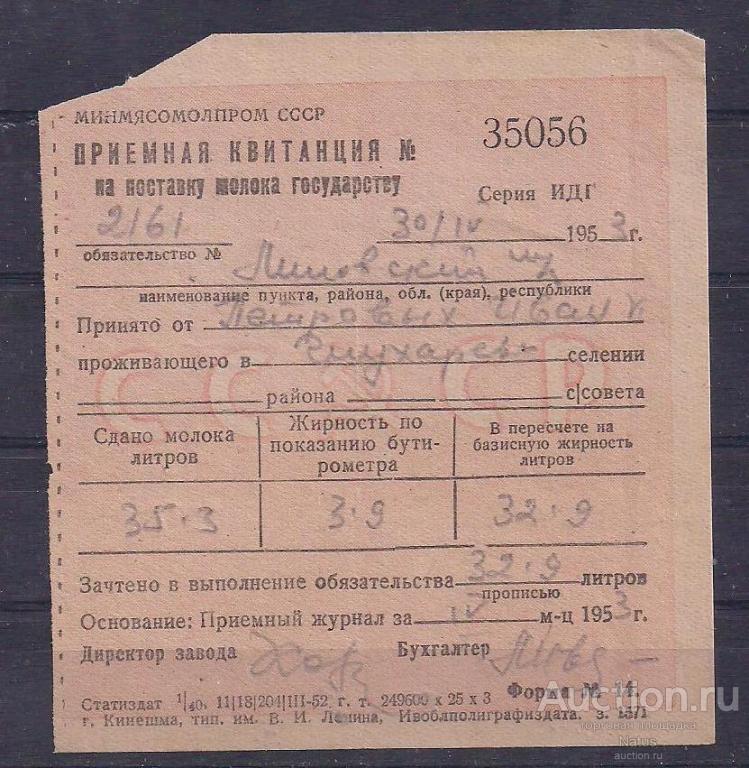 МИНМЯСОМОЛПРОМ СССР
35056
ПРИЕМНАЯ КВИТАНЦИЯ №
на поставку молока государству
Серия ИДГ
2161
30/IV 1953 г.
обязательство №
наименование пункта, района, обл. (края), республики
Принято от Петровых Иван
проживающего в селении
района с|совета
СССР
Сдано молока литров
Жирность по показанию бути-рометра
В пересчете на базисную жирность литров
35.3 3.9 32.9
Зачтено в выполнение обязательства 32.9 литров
прописью
Основание: Приемный журнал за IV м-ц 1953 г.
Директор завода Бухгалтер
Форма № 14
Статиздат 1/40, 11|18|204|III-52 г. т. 249600 х 25 х 3
г. Кинешма, тип. им. В. И. Ленина, Ивоблполиграфиздата. з. 1571
Auction.ru
торговая площадка
Natus
auction.ru